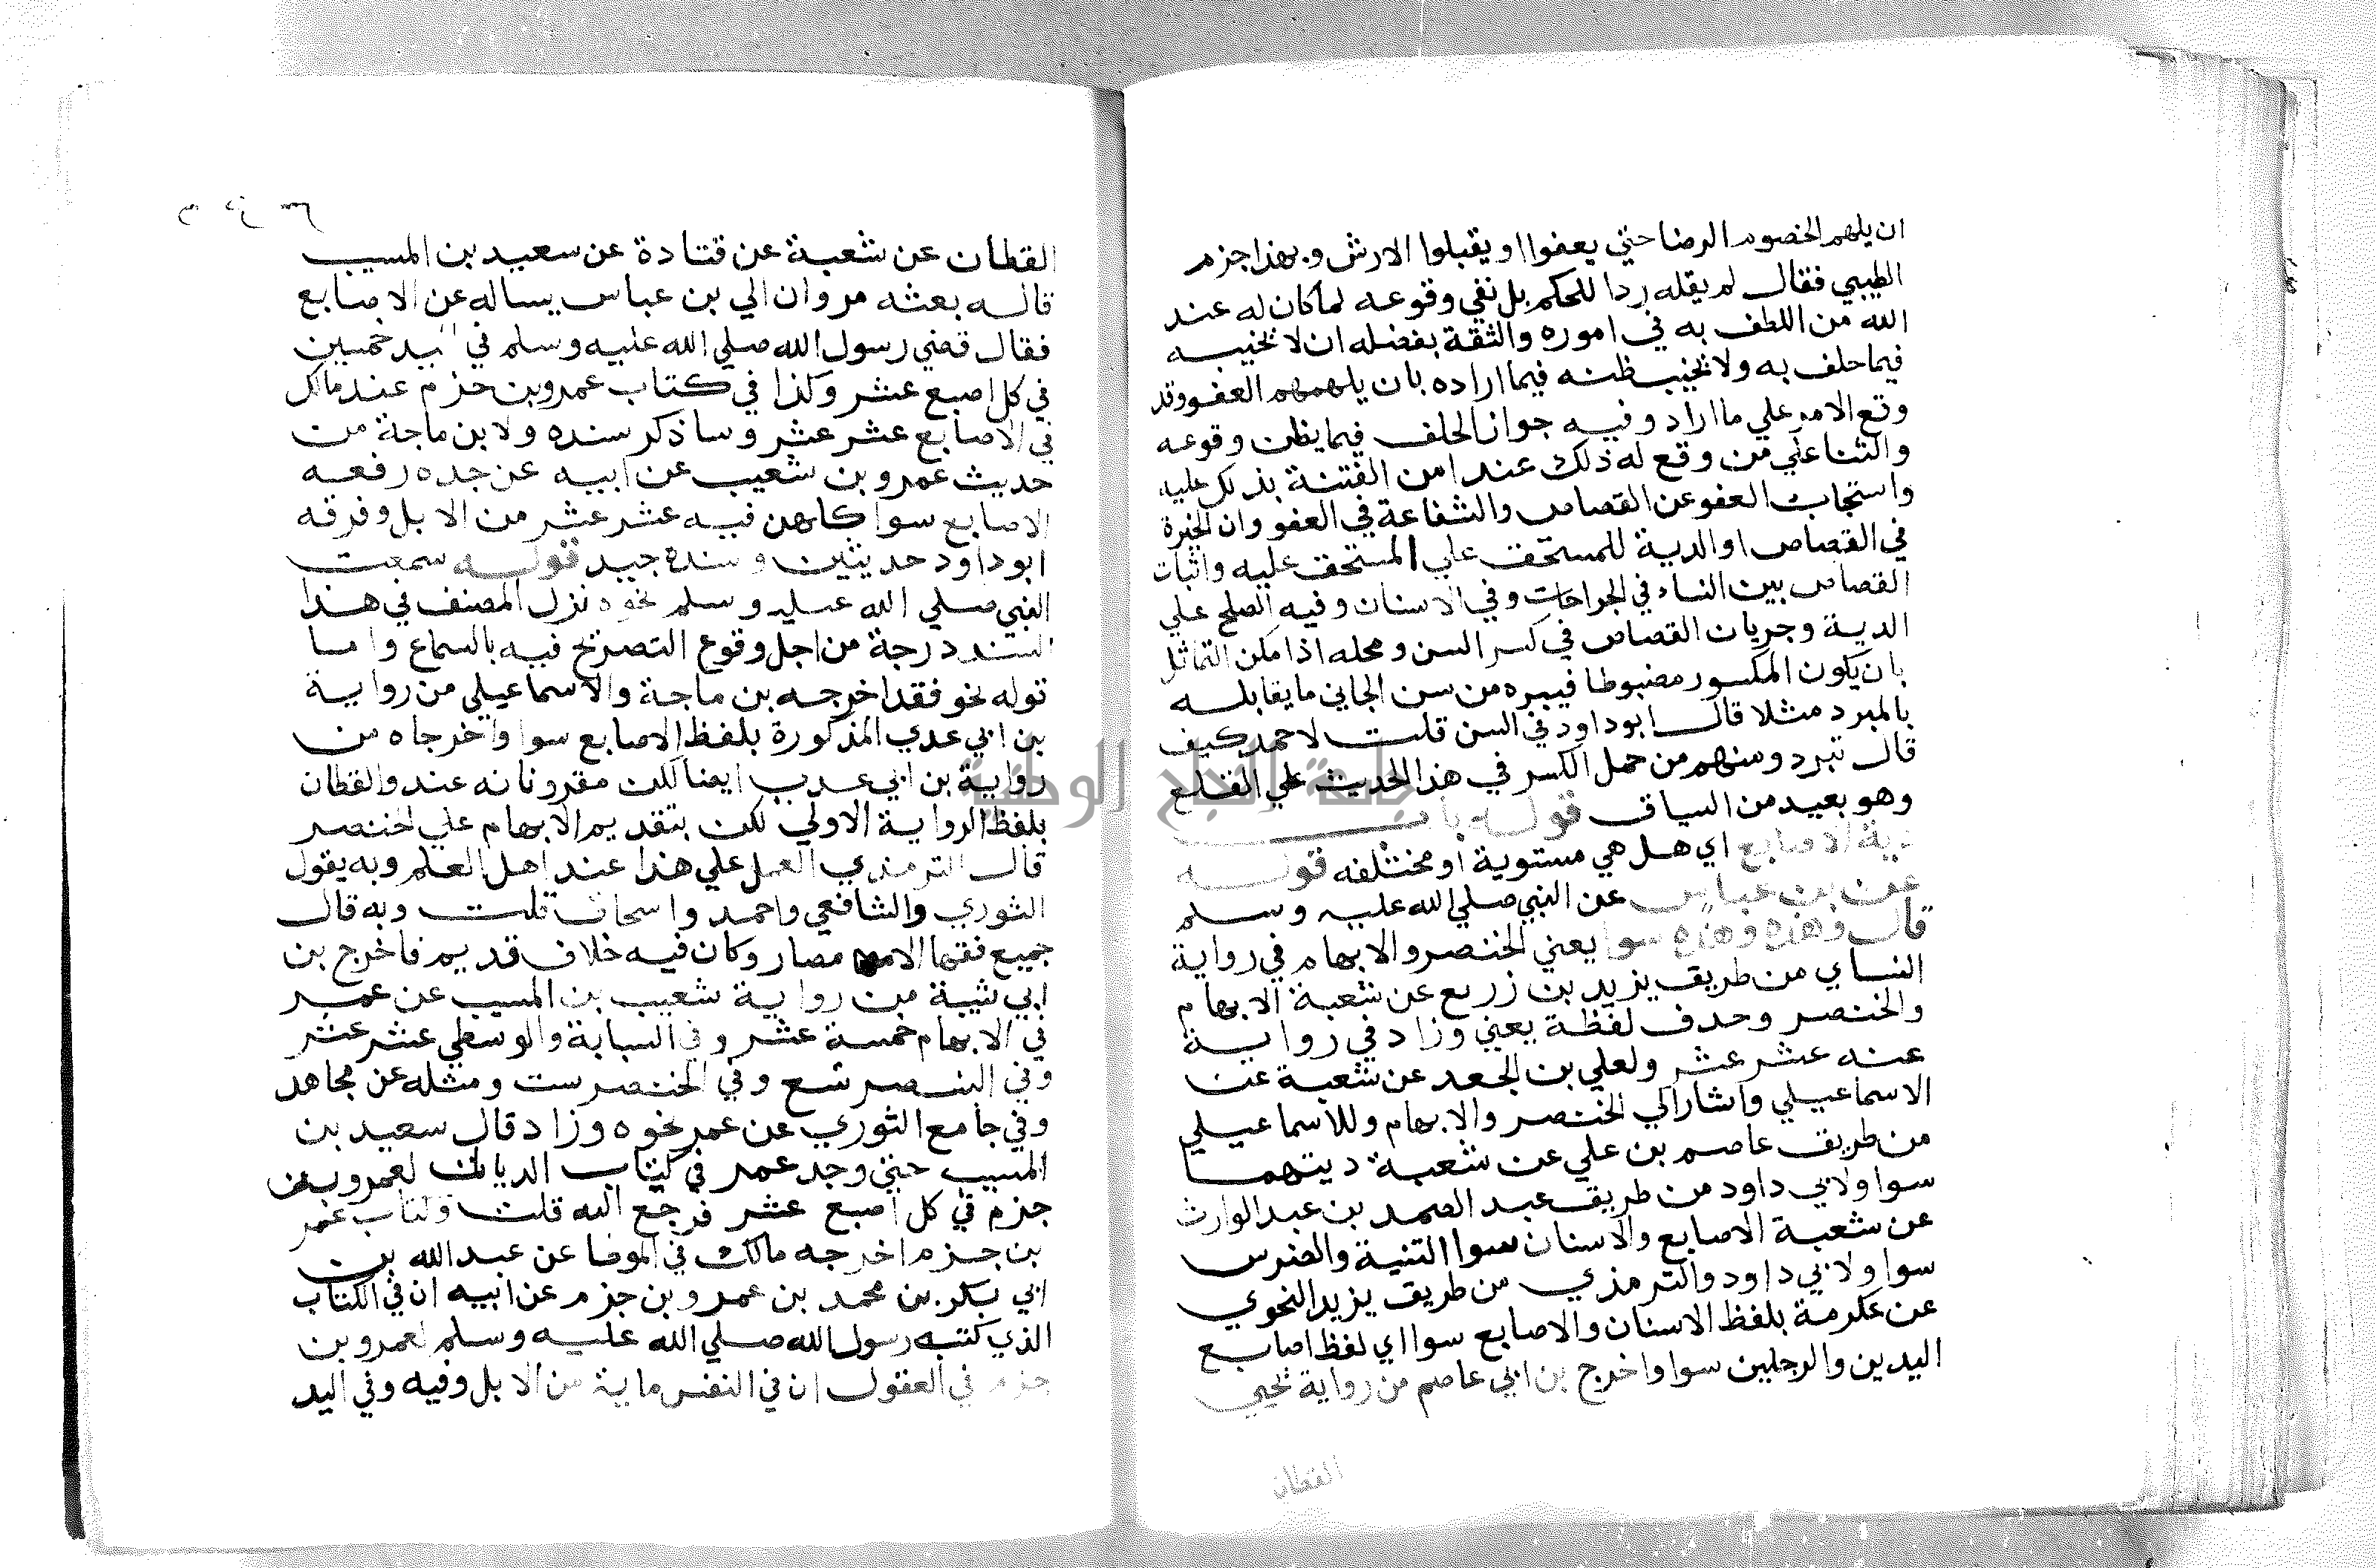 ان يلهم الخصوم الرضا حتي يعفوا او يقبلوا الارش وبهذا جزم
الطيبي فقال لم يقله ردا للحكم بل نفي وقوعه لما كان له عند
الله من اللطف به في اموره والثقة بفضله ان لا يخيبه
فيما حلف به ولا يخيب ظنه فيما اراده بان يلهمهم العفو وقد
وقع الامر علي ما اراد وفيه جواز الحلف فيما يظن وقوعه
والثنا علي من وقع له ذلك عند امن الفتنة بذلك عليه
واستجاب العفو عن القصاص والشفاعة في العفو وان الخيرة
في القصاص او الدية للمستحق علي المستحق عليه واثبات
القصاص بين النساء في الجراحات وفي الاسنان وفيه الصلح علي
الدية وجريان القصاص في كسر السن ومحله اذا مكن التماثل
بان يكون المكسور مضبوطا فيبره من سن الجاني ما يقابله
بالمبرد مثلا قال ابو داود في السن قلت لاحمد كيف
قال تبرد ومنهم من حمل الكسر في هذا الحديث علي القلع
وهو بعيد من السياق قوله باب
دية الاصابع اي هل هي مستوية او مختلفه قوله
عن بن عباس عن النبي صلي الله عليه وسلم
قال وهذه وهذه سوا يعني الخنصر والابهام في رواية
النساي من طريق يزيد بن زريع عن شعبة الابهام
والخنصر وحدف لفظة يعني وزاد في رواية
عنه عشر عشر ولعلي بن الجعد عن شعبة عن
الاسماعيلي واشار الي الخنصر والابهام وللاسماعيلي
من طريق عاصم بن علي عن شعبة ديتهما
سوا ولابي داود من طريق عبد الصمد بن عبد الوارث
عن شعبة الاصابع والاسنان سوا الثنية والضرس
سوا ولابي داود والترمذي من طريق يزيد النحوي
عن عكرمة بلفظ الاسنان والاصابع سوا اي لفظ اصابع
اليدين والرجلين سوا واخرج بن ابي عاصم من رواية يحيي
القطان
القطان عن شعبة عن قتادة عن سعيد بن المسيب
قاله بعثه مروان الي بن عباس يساله عن الاصابع
فقال قضي رسول الله صلي الله عليه وسلم في اليد خمسين
في كل اصبع عشر وكذا في كتاب عمرو بن حزم عند مالك
في الاصابع عشر عشر وساذكر سنده ولابن ماجة من
حديث عمرو بن شعيب عن ابيه عن جده رفعه
الاصابع سوا كلهن فيه عشر عشر من الابل وفرقه
ابو داود حديثين وسنده جيد قوله سمعت
النبي صلي الله عليه وسلم نحوه نزل المصنف في هذا
السند درجة من اجل وقوع التصريح فيه بالسماع واما
قوله نحو فقد اخرجه بن ماجة والاسماعيلي من رواية
بن ابي عدي المذكورة بلفظ الاصابع سوا واخرجاه من
رواية بن ابي عدي ايضا لكن مقرونا به عند والقطان
بلفظ الرواية الاولي لكن بتقديم الابهام علي الخنصر
قال الترمذي العمل علي هذا عند اهل العلم وبه يقول
الثوري والشافعي واحمد واسحاق قلت وبه قال
جميع فقها الامصار وكان فيه خلاف قديم فاخرج بن
ابي شيبة من رواية شعيب بن المسيب عن عمر
في الابهام خمسة عشر وفي السبابة والوسطي عشر عشر
وفي البنصر تسع وفي الخنصر ست ومثله عن مجاهد
وفي جامع الثوري عن عمر نحوه وزاد قال سعيد بن
المسيب حتي وجد عمر في كتاب الديات لعمرو بن
حزم في كل اصبع عشر فرجع اليه قلت وكتاب عمر
بن حزم اخرجه مالك في الموطا عن عبد الله بن
ابي بكر بن محمد بن عمرو بن حزم عن ابيه ان في الكتاب
الذي كتبه رسول الله صلي الله عليه وسلم لعمرو بن
حزم في العقول ان في النفس ماية من الابل وفيه وفي اليد
جامعة النجاح الوطنية